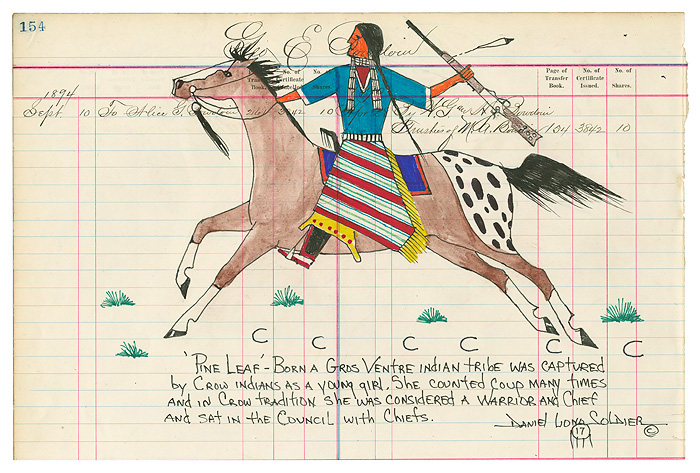 154
Geo E Bowdoin
No. of Certificate
No. Shares.
Page of Transfer Book.
No. of Certificate Issued.
No. of Shares.
1894
Sept. 10 To Alice G. Bowdoin 10
104 3842 10
C C C C C C
'PINE LEAF' - BORN A GROS VENTRE INDIAN TRIBE WAS CAPTURED
by CROW INDIANS AS A YOUNG GIRL. SHE COUNTED COUP MANY TIMES
AND IN CROW TRADITION SHE WAS CONSIDERED A WARRIOR AND CHIEF
AND SAT IN THE COUNCIL WITH CHIEFS.
DANIEL LONG SOLDIER ©
17